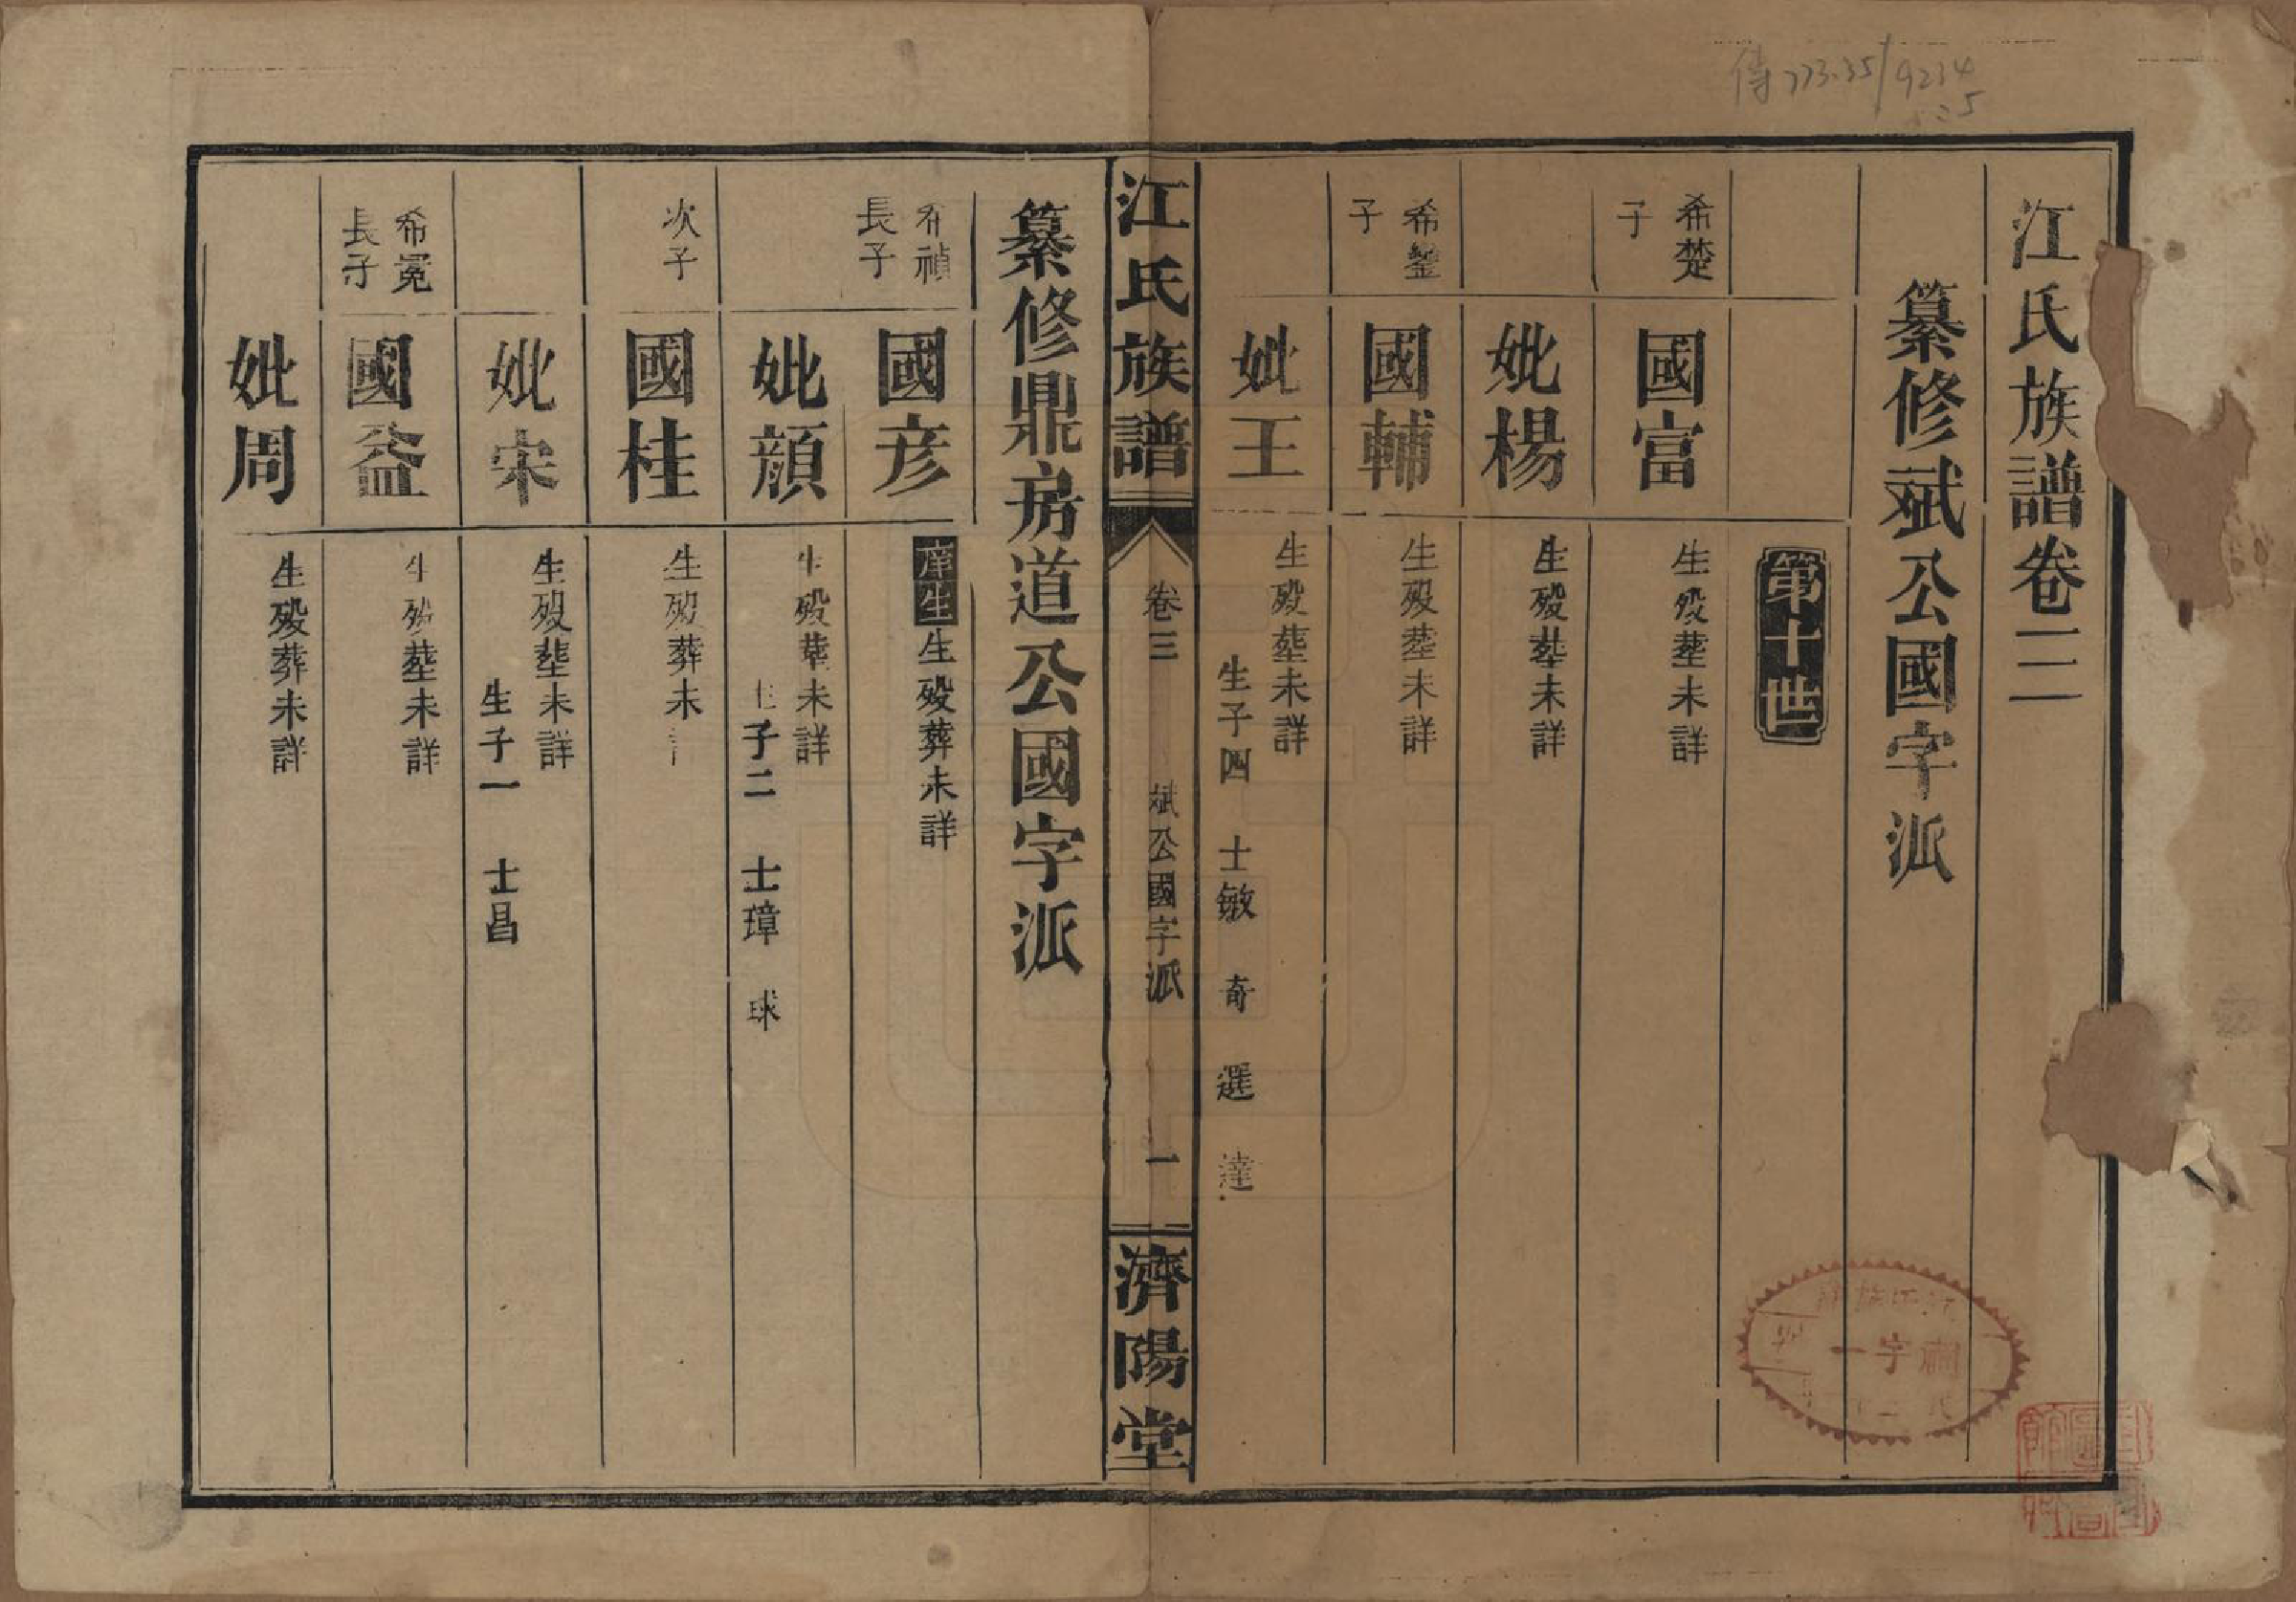 江氏族譜卷三
纂修斌公國字派
第十世
希楚子
國富
生殁塟未詳
妣楊
生殁塟未詳
希鎣子
國輔
生殁塟未詳
妣王
生殁塟未詳
生子四 士敏 奇 選 達
江氏族譜
卷三
斌公國字派
一
濟陽堂
纂修鼎房道公國字派
希禎長子
國彦
庠生生殁葬未詳
妣顔
生殁葬未詳
生子二 士璋 球
次子
國桂
生殁葬未詳
妣宋
生殁塟未詳
生子一 士昌
希冕長子
國益
生殁塟未詳
妣周
生殁葬未詳
傳773.35/9234
字一